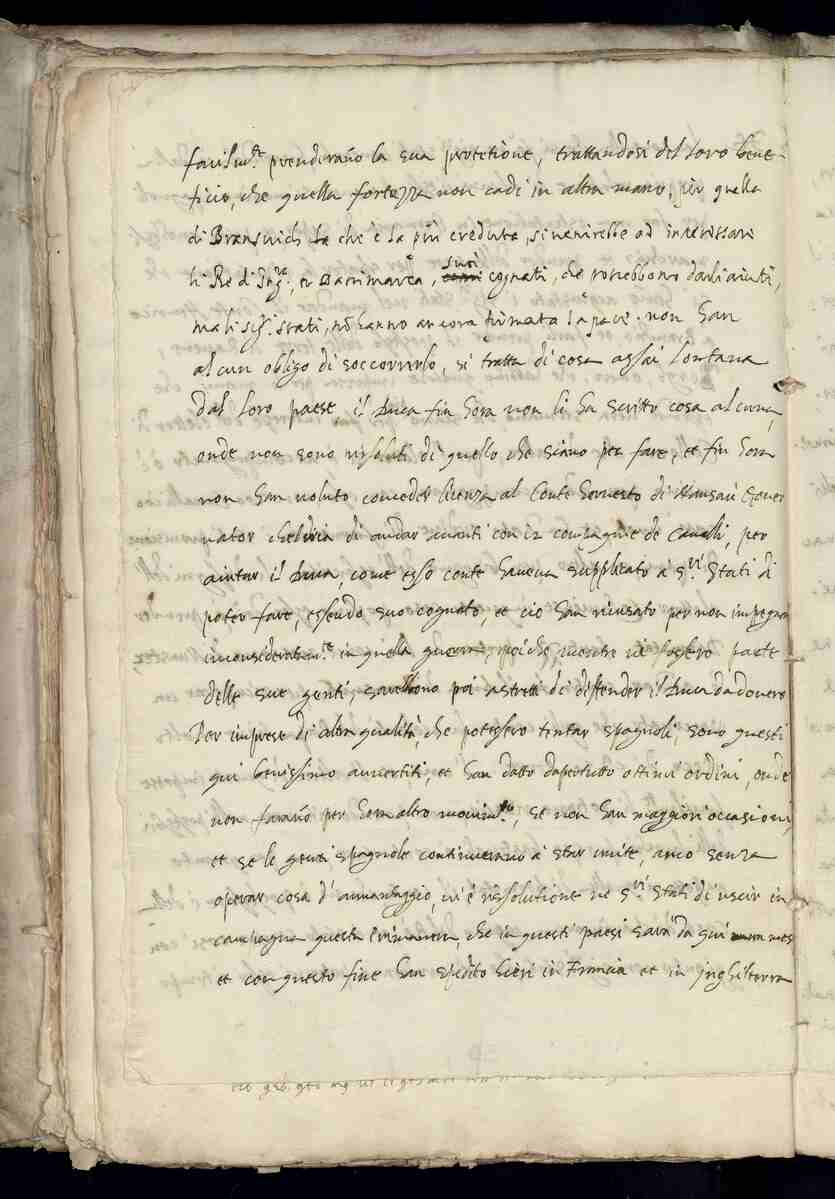 facilm.te prenderãno la sua protetione, trattandosi del loro bene-
ficio, che quella fortezza non cadi in altra mano, per quella
di Bransvich la che è la più creduta, si venirebbe ad interessare
li Re di Ing.ra, et Danimarca, suoi cognati, che vorrebbono darli aiuti,
ma li sig.i stati, nõ hanno ancora firmata la pace. non han
alcun obligo di soccorrerlo, si tratta di cosa assai lontana
dal loro paese, il Duca fin hora non li ha scritto cosa alcuna,
onde non sono rissoluti di quello che siano per fare, et fin hora
non han voluto conceder licenza al Conte Hernesto di Nansau Gover
nator di andar avanti con 12 compagnie de Cavalli, per
aiutar il Duca, come esso conte haveva supplicato a S.ri Stati di
poter fare, essendo suo cognato, et ciò han ricusato per non impegnar
inconsideratam.te in quella guerra, poiche, mentre vi fossero parte
delle sue genti, sarebbono poi astretti di diffender il Duca da dovero
Per imprese di altra qualità, che potessero tentar spagnoli, sono questi
qui benissimo avvertiti, et han datto dapertutto ottimi ordini, onde
non farãno per hora altro movim.to, se non han maggiori occasioni,
et se le genti spagnole continueranno à star unite, anco senza
operar cosa d'avvantaggio, vi è rissolutione ne S.ri Stati di uscir in
campagna questa primavera, che in questi paesi sarà da qui
et con questo fine han spedito hieri in Francia et in inghilterra